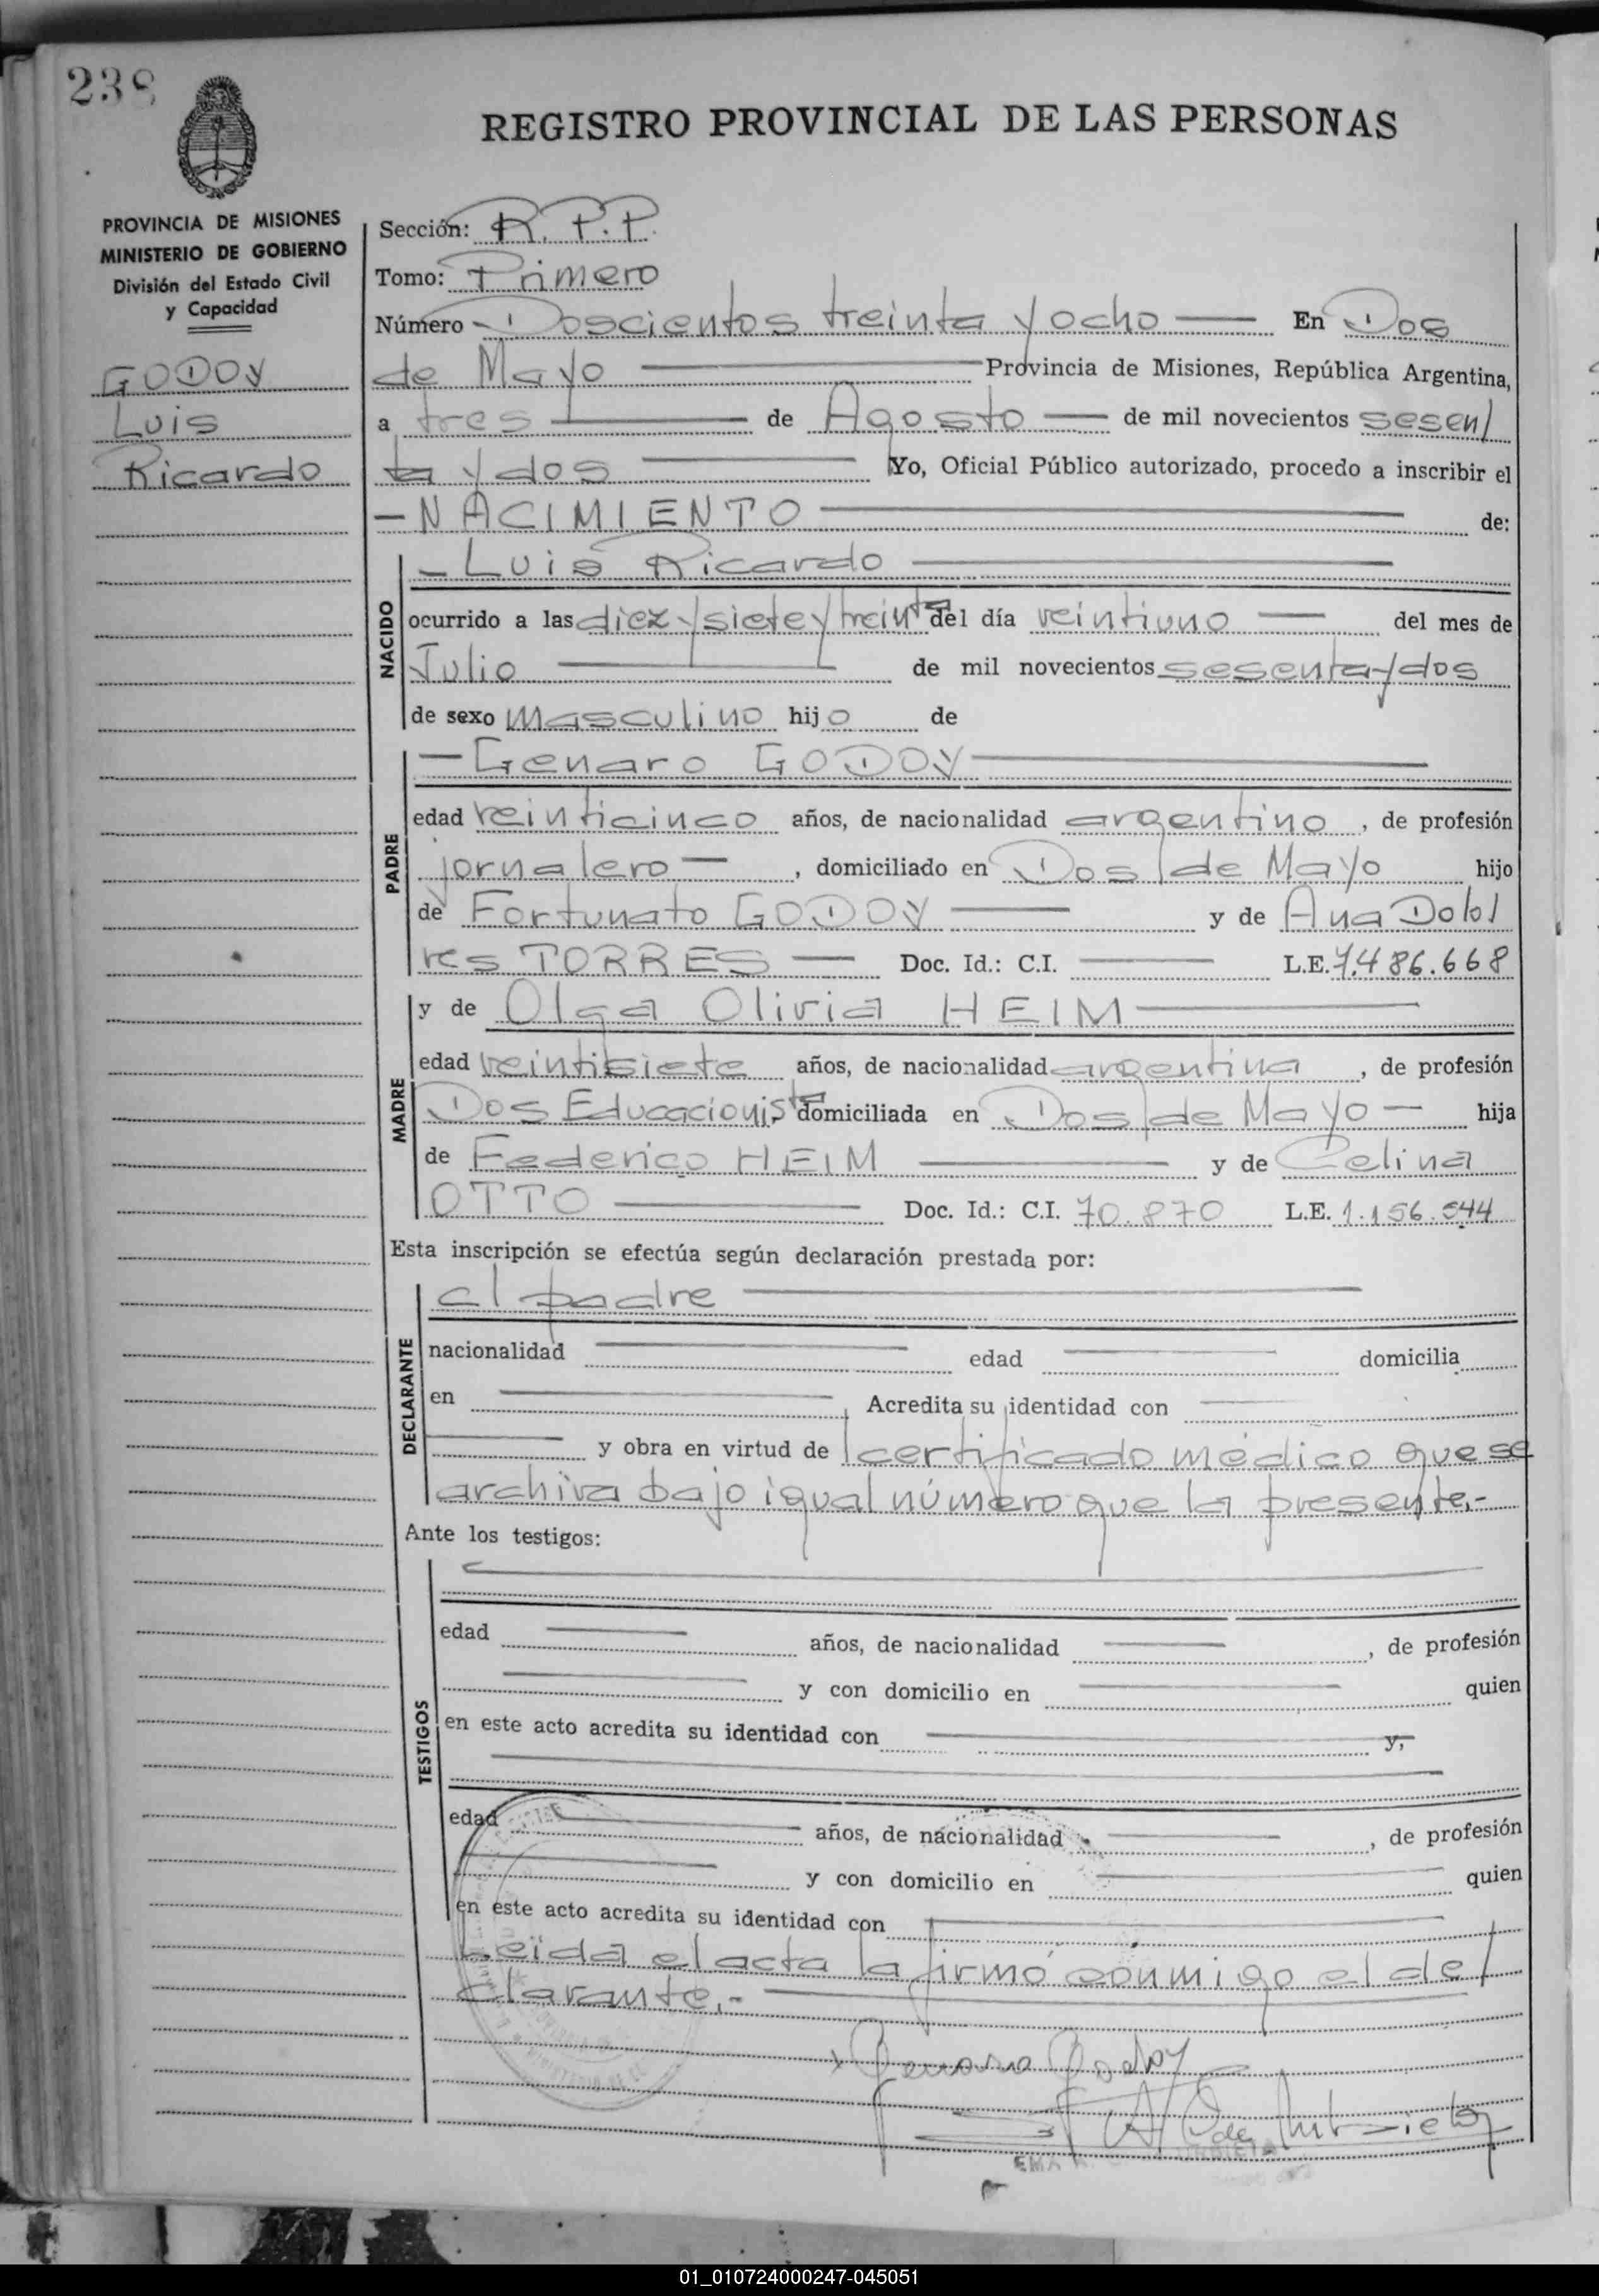 238
REGISTRO PROVINCIAL DE LAS PERSONAS
PROVINCIA DE MISIONES
MINISTERIO DE GOBIERNO
División del Estado Civil
y Capacidad
GODOY
Luis
Ricardo
Sección: R.P.P.
Tomo: Primero
Número - Doscientos treinta y ocho — En Dos
de Mayo — Provincia de Misiones, República Argentina,
a tres — de Agosto — de mil novecientos sesen/
ta y dos — Yo, Oficial Público autorizado, procedo a inscribir el
- NACIMIENTO — de:
NACIDO
- Luis Ricardo —
ocurrido a las diez y siete y treinta del día veintiuno — del mes de
Julio — de mil novecientos sesenta y dos
de sexo masculino hijo de
PADRE
- Genaro GODOY —
edad veinticinco años, de nacionalidad argentino, de profesión
jornalero —, domiciliado en Dos de Mayo hijo
de Fortunato GODOY — y de Ana Dolo/
res TORRES — Doc. Id.: C.I. — L.E. 7.486.668
MADRE
y de Olga Olivia HEIM —
edad veintisiete años, de nacionalidad argentina, de profesión
Dos Educacionista domiciliada en Dos de Mayo — hija
de Federico HEIM — y de Celina
OTTO — Doc. Id.: C.I. 70.870 L.E. 1.156.544
Esta inscripción se efectúa según declaración prestada por:
DECLARANTE
el padre —
nacionalidad — edad — domicilia
en — Acredita su identidad con —
— y obra en virtud de certificado médico que se
archiva bajo igual número que la presente.-
Ante los testigos:
TESTIGOS
edad — años, de nacionalidad —, de profesión
— y con domicilio en — quien
en este acto acredita su identidad con — y,
edad — años, de nacionalidad —, de profesión
— y con domicilio en — quien
en este acto acredita su identidad con —
Leida el acta la firmó conmigo el de/
clarante.-
Genaro Godoy
01_010724000247-045051